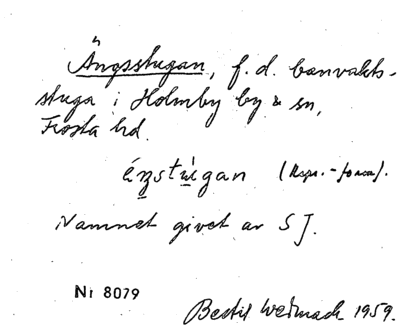 Ängsstugan, f.d. banvakts-
stuga i Holmby by & sn,
Frosta hd.
ézstúgan (Rspr.-form).
Namnet givet av SJ.
Nr 8079
Bertil 1959.